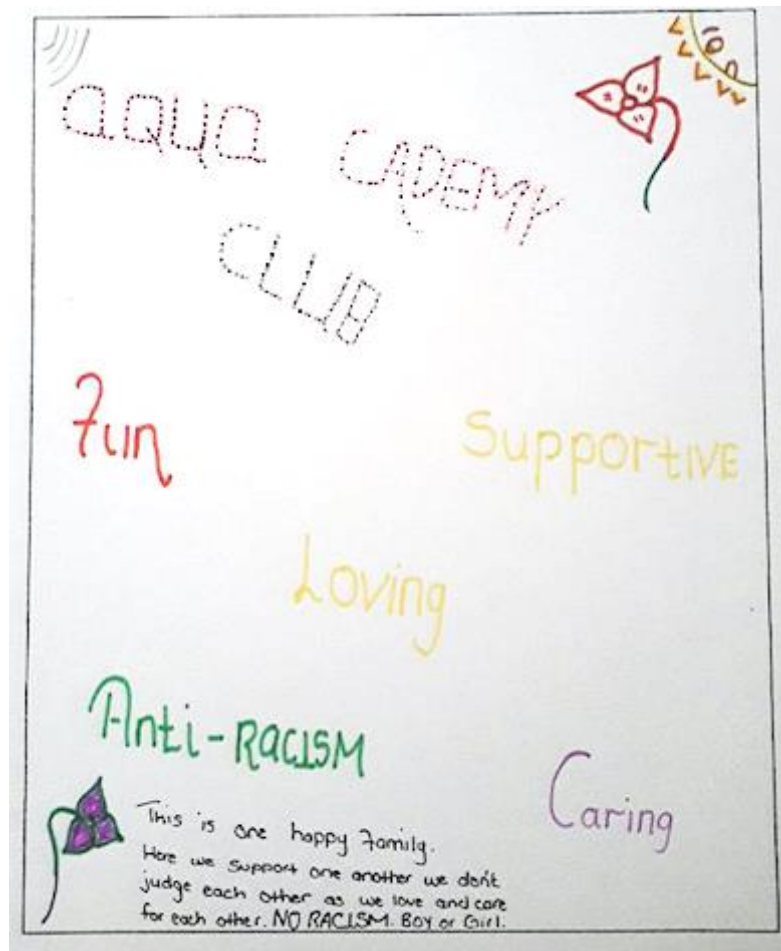 AQUA CADEMY
CLUB
Fun
Supportive
Loving
Anti-RACISM
Caring
This is one happy Family.
Here we support one another we don't
judge each other as we love and care
for each other. NO RACISM. Boy or Girl.